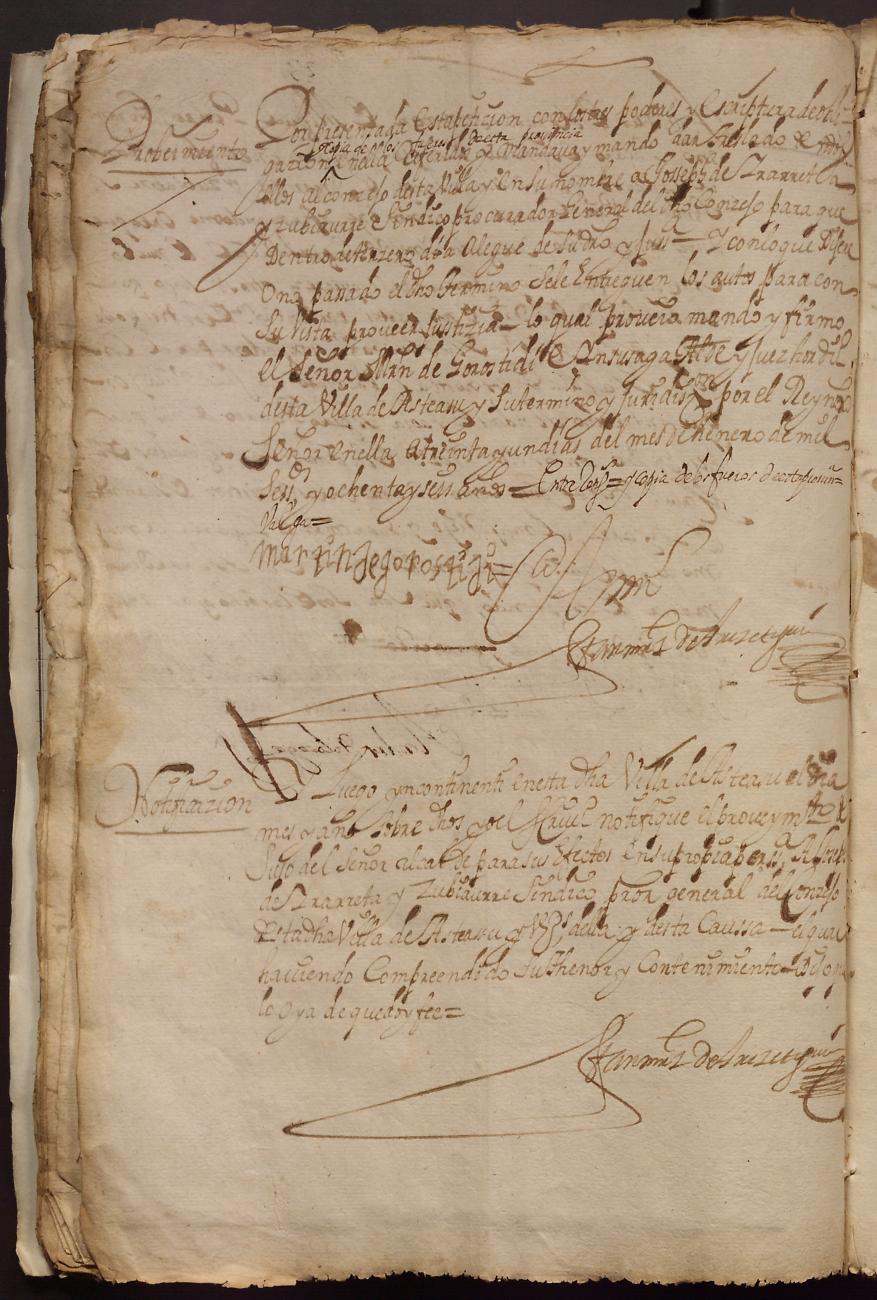 Probeimiento
Por presentada esta peticion con los tres poderes y escriptura de obli=
y copia de los fueros de esta provincia
gazion en ella y mandava y mando dar treslado de
ellos al conzejo desta Villa y en su nombre a Joseph de Yrarreta
y Zubiaurre sindico procurador General del dho Conzejo para que
Dentro de terzero dia alegue de su dro y Justa — y con lo que
O no passado el dho termino se le entreguen los autos para con
su vista proveer Justizia — lo qual proveio mando y firmo
el señor Mrn de Gorostidi e Ynsusaga Allde y Juez hordi
desta Villa de Asteasu y su termino y jurdison por el Rey nro
Señor en ella a treinta y un dias del mes de henero de mill
Seisos y ochenta y seis años = Entre = y copia de los fueros de esta provin=
Valga=
Martin de gorostidi=
Ante mi
Fran de Arizeegui
Notificazion
Luego yncontinenti en esta dha Villa de Asteasu el dia
mes y año sobre dhos yo el ssno notifique el proveymto de
suso del señor alcalde para sus efectos en su propia persa A Joseph
de Yrarreta y Zubiaurre Sindico pror general del Conzejo
desta dha Villa de Asteasu y vzo della y desta Caussa — el qual
haviendo Comprendido su thenor y Contenimiento dijo que
lo oya de que doy fee=
Fran de Arizeegui